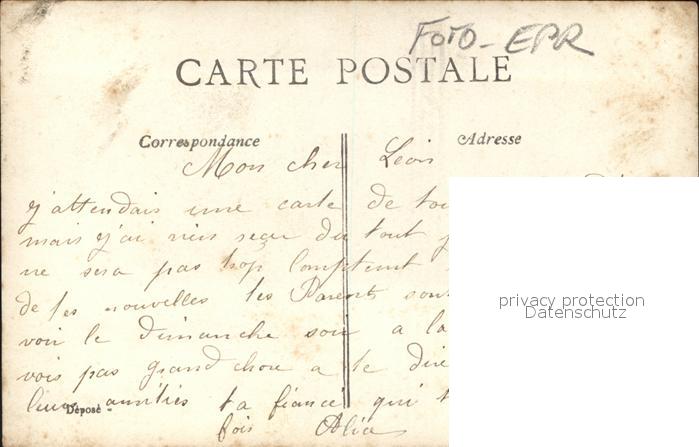 FOTO - EPR
CARTE POSTALE
Correspondance
Adresse
Mon cher Léon
j'attendais une carte de toi
mais j'ai rien reçu du tout
ne sera pas trop
de tes nouvelles tes Parents sont
voir le dimanche soir a la
vois pas grand chose a te dire
amitiés ta fiancé qui t
Déposé
fois
privacy protection
Datenschutz